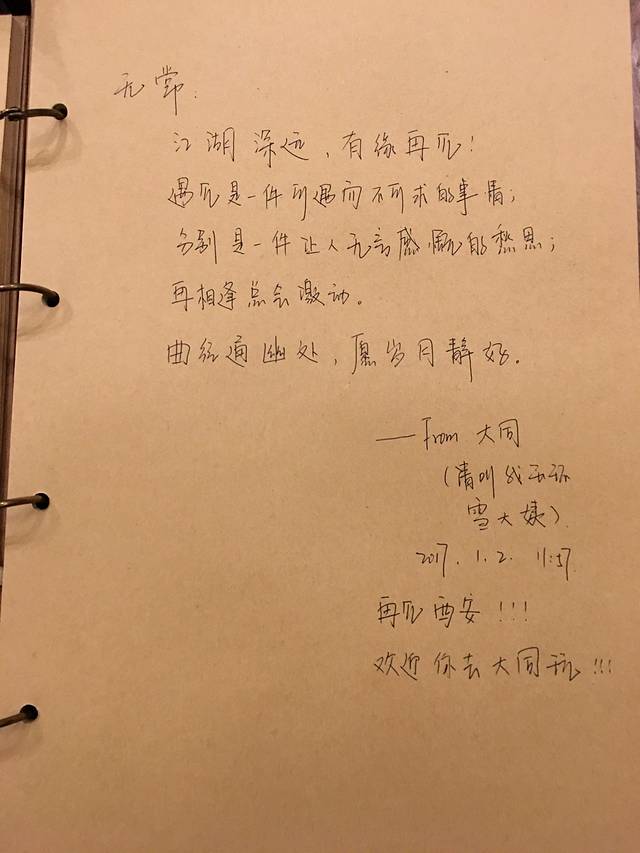 无常：
江湖深远，有缘再见！
遇见是一件可遇而不可求的事情；
分别是一件让人无言感慨的愁思；
再相逢总会激动。
曲径通幽处，愿岁月静好。
——From 大同
（请叫我
雪大姨）
2017.1.2. 11:57
再见西安！！！
欢迎你去大同玩！！！